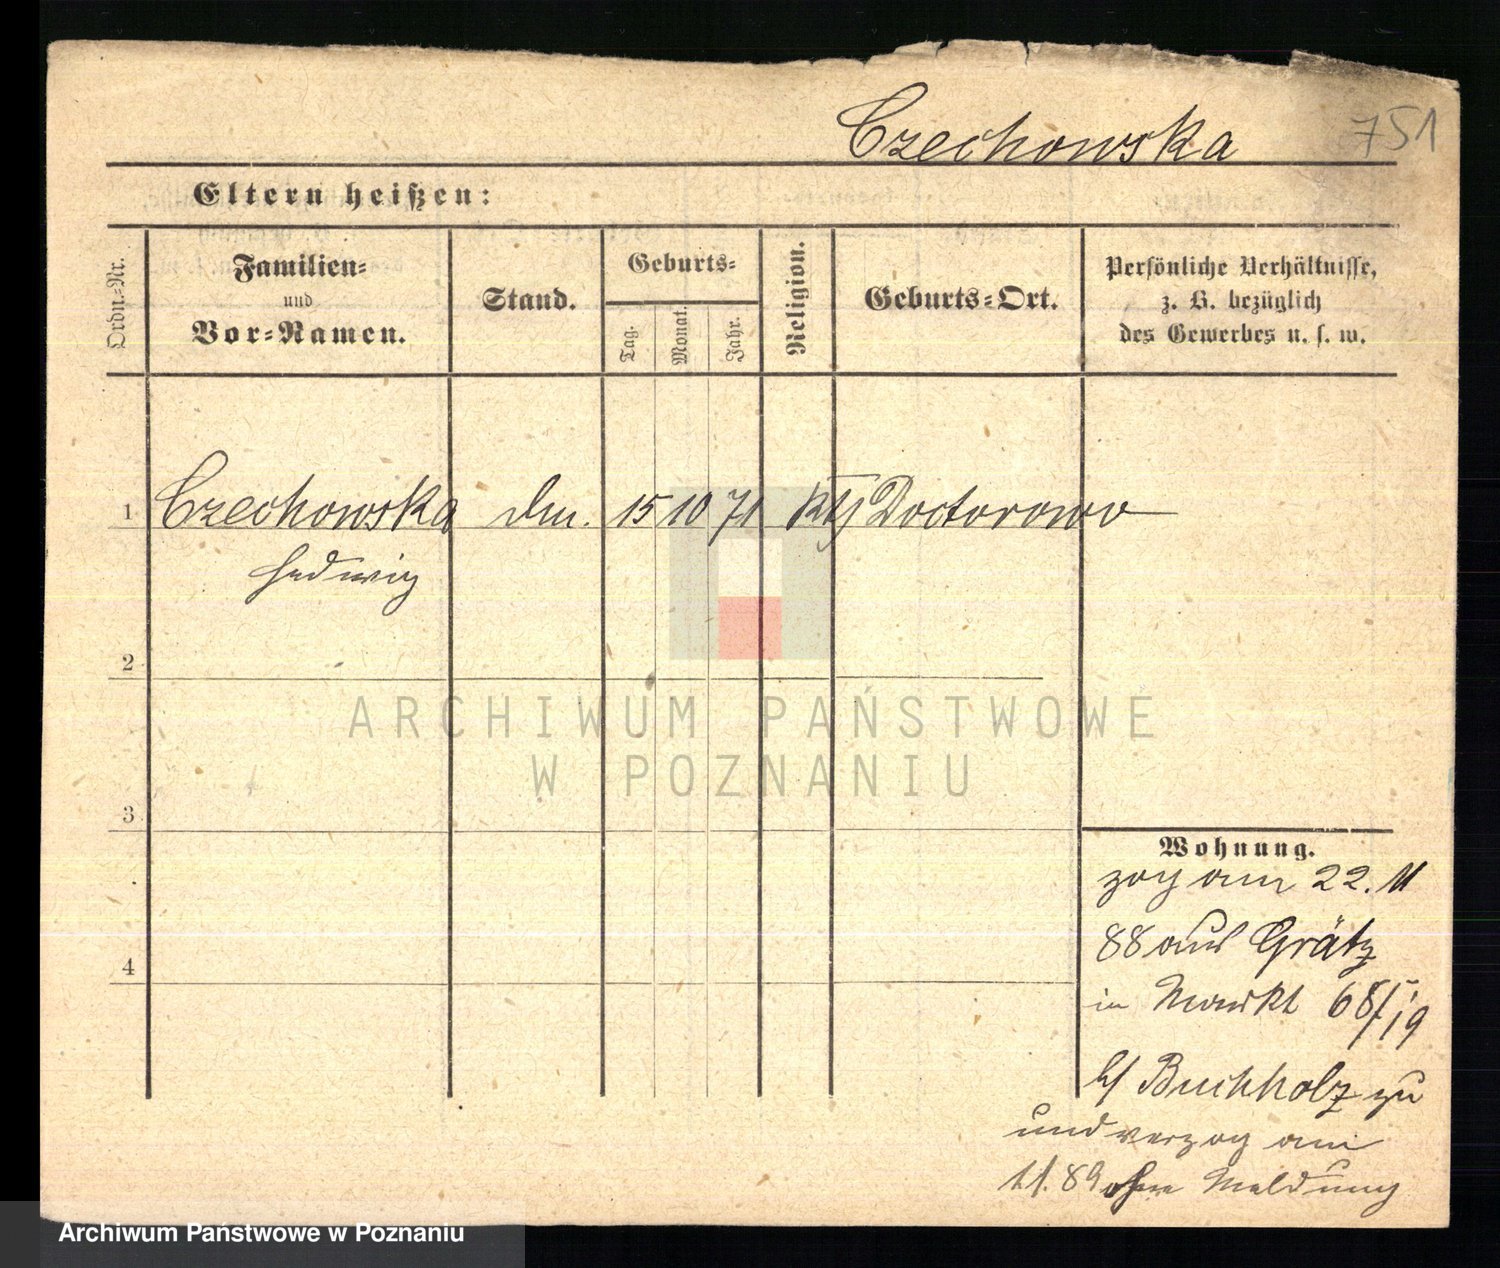 Czechowska 751
Eltern heißen:
Ordn.-Nr.
Familien-
und
Vor-Namen.
Stand.
Geburts-
Tag.
Monat.
Jahr.
Religion.
Geburts-Ort.
Persönliche Verhältnisse,
z. B. bezüglich
des Gewerbes u. s. w.
1 Czechowska 15 10 71 kth Doctorowo
Hedwig
2
3
4
ARCHIWUM PAŃSTWOWE
W POZNANIU
Wohnung.
zog am 22. 11
88 aus Grätz
in Markt 68/
b/ Buchholz zu
und verzog am
1.1.89 ohne Meldung
Archiwum Państwowe w Poznaniu